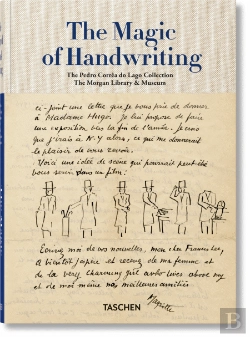 The Magic
of Handwriting
The Pedro Corrêa do Lago Collection
The Morgan Library & Museum
ci-joint une lettre que je vous prie de donner
à Madame Hugo. Je lui propose de faire
une exposition vers la fin de l'année. Je crois
que j'irais à N.Y. alors, ce qui me donnerait
le plaisir de vous revoir.
Voici une idée de scène qui pourrait peut être
vous servir dans un film:
Envoyez moi de vos nouvelles, mon cher
à bientôt j'espère et recevez de ma femme et
de la very charming girl who lives above my
et de moi même nos meilleures amitiés.
Magritte
TASCHEN
B